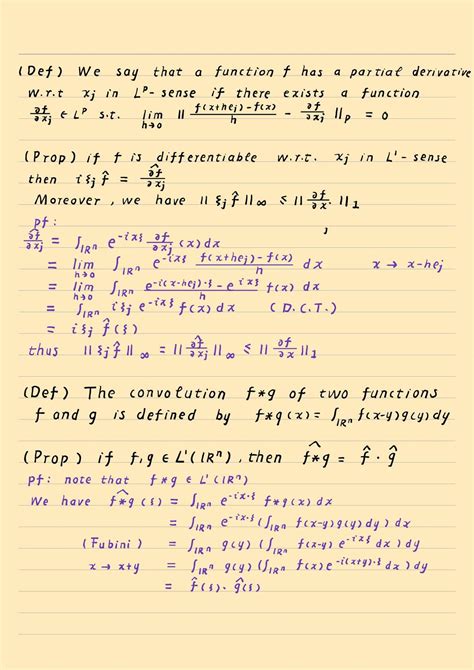 (Def) We say that a function f has a partial derivative
w.r.t xj in L^p-sense if there exists a function
∂f/∂xj ∈ L^p s.t. lim_{h→0} || (f(x+hej)-f(x))/h - ∂f/∂xj ||_p = 0
(Prop) if f is differentiable w.r.t. xj in L'-sense
then iξj f̂ = \widehat{∂f/∂xj}
Moreover, we have ||ξj f̂||∞ ≤ ||∂f/∂x.||_1
,
pf:
\widehat{∂f/∂xj} = ∫_{IR^n} e^{-ixξ} ∂f/∂xj (x) dx
= lim_{h→0} ∫_{IR^n} e^{-ixξ} (f(x+hej)-f(x))/h dx    x → x-hej
= lim_{h→0} ∫_{IR^n} (e^{-i(x-hej)·ξ} - e^{-ixξ})/h f(x) dx
= ∫_{IR^n} iξj e^{-ixξ} f(x) dx    (D.C.T.)
= iξj f̂(ξ)
thus ||ξj f̂||∞ = ||\widehat{∂f/∂xj}||∞ ≤ ||∂f/∂x||_1
(Def) The convolution f*g of two functions
f and g is defined by f*g(x) = ∫_{IR^n} f(x-y)g(y)dy
(Prop) if f,g ∈ L'(IR^n), then \widehat{f*g} = f̂ · ĝ
pf: note that f*g ∈ L'(IR^n)
We have \widehat{f*g}(ξ) = ∫_{IR^n} e^{-ix·ξ} f*g(x) dx
= ∫_{IR^n} e^{-ix·ξ} (∫_{IR^n} f(x-y)g(y)dy) dx
(Fubini) = ∫_{IR^n} g(y) (∫_{IR^n} f(x-y) e^{-ixξ} dx) dy
x → x+y = ∫_{IR^n} g(y) (∫_{IR^n} f(x) e^{-i(x+y)·ξ} dx) dy
= f̂(ξ)·ĝ(ξ)